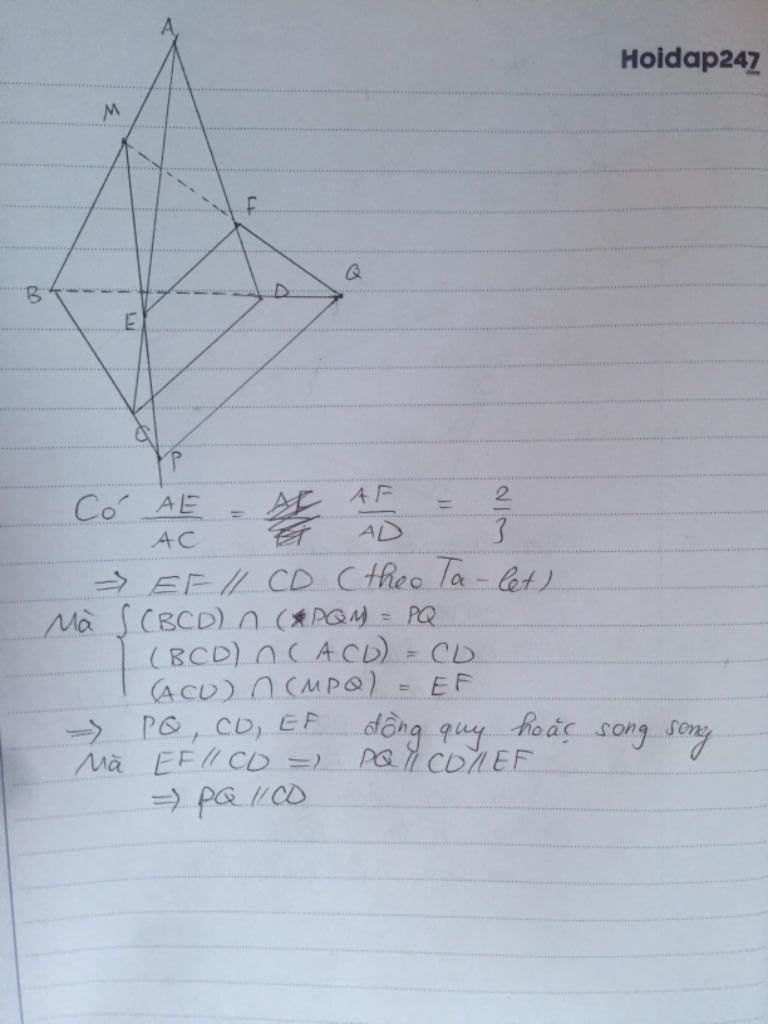 Hoidap247
.com
A
M
F
Q
B
D
E
C
P
Có AE/AC = AF/AD = 2/3
=> EF // CD (theo Ta-let)
Mà { (BCD) ∩ (PQM) = PQ
(BCD) ∩ (ACD) = CD
(ACD) ∩ (MPQ) = EF
=> PQ, CD, EF đồng quy hoặc song song
Mà EF // CD => PQ // CD // EF
=> PQ // CD